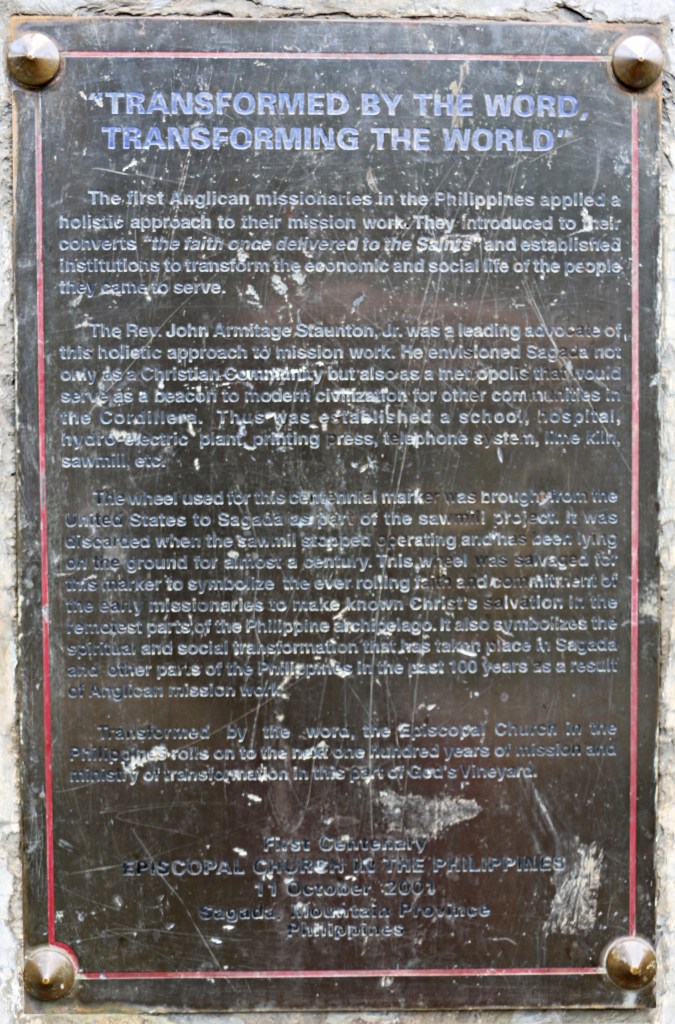 "TRANSFORMED BY THE WORD,
TRANSFORMING THE WORLD"
The first Anglican missionaries in the Philippines applied a
holistic approach to their mission work. They introduced to their
converts "the faith once delivered to the Saints" and established
institutions to transform the economic and social life of the people
they came to serve.
The Rev. John Armitage Staunton, Jr. was a leading advocate of
this holistic approach to mission work. He envisioned Sagada not
only as a Christian Community but also as a metropolis that would
serve as a beacon to modern civilization for other communities in
the Cordillera. Thus was established a school, hospital,
hydro electric plant, printing press, telephone system, lime kiln,
sawmill, etc.
The wheel used for this centennial marker was brought from the
United States to Sagada as part of the sawmill project. It was
discarded when the sawmill stopped operating and has been lying
on the ground for almost a century. This wheel was salvaged for
this marker to symbolize the ever rolling faith and commitment of
the early missionaries to make known Christ's salvation in the
remotest parts of the Philippine archipelago. It also symbolizes the
spiritual and social transformation that has taken place in Sagada
and other parts of the Philippines in the past 100 years as a result
of Anglican mission work.
Transformed by the word, the Episcopal Church in the
Philippines rolls on to the next one hundred years of mission and
ministry of transformation in this part of God's Vineyard.
First Centenary
EPISCOPAL CHURCH IN THE PHILIPPINES
11 October 2001
Sagada, Mountain Province
Philippines